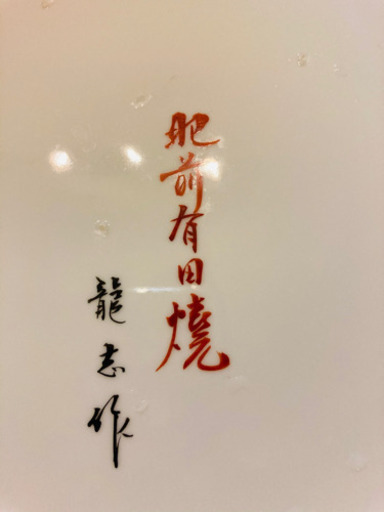 肥前有田燒
龍志作